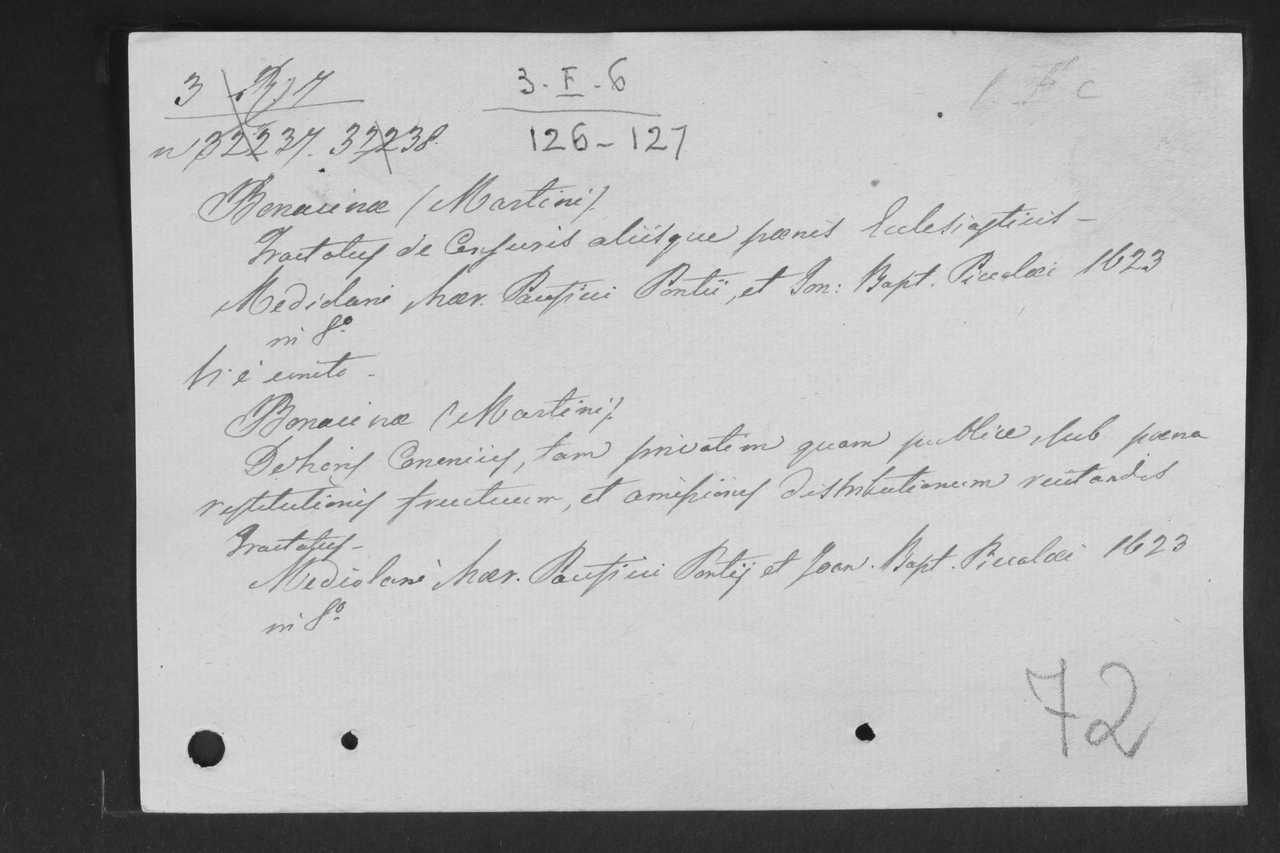 3 B 17
3. F. 6
n 32237. 32238.
126 - 127
Bonacinæ (Martini).
Tractatus de Censuris aliisque pœnis Ecclesiasticis -
Mediolani hær. Pacifici Pontii, et Jon: Bapt. Piccalæi 1623
in 8º
Vi è unito -
Bonacinæ (Martini).
De horis Canonicis, tam privatim quam publice, sub pœna
restitutionis fructuum, et amissionis distributionum recitandis
Tractatus -
Mediolani hær. Pacifici Pontij et Joan. Bapt. Piccalæi 1623
in 8º
72